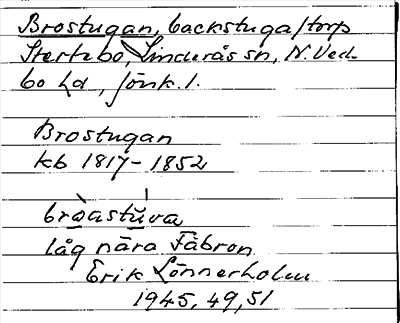 Brostugan, backstuga/torp
Stertebo, Linderås sn, N. Ved-
bo hd, Jönk. l.
Brostugan
kb 1817-1852
bròastúva
låg nära Fåbron
Erik Lönnerholm
1945, 49, 51